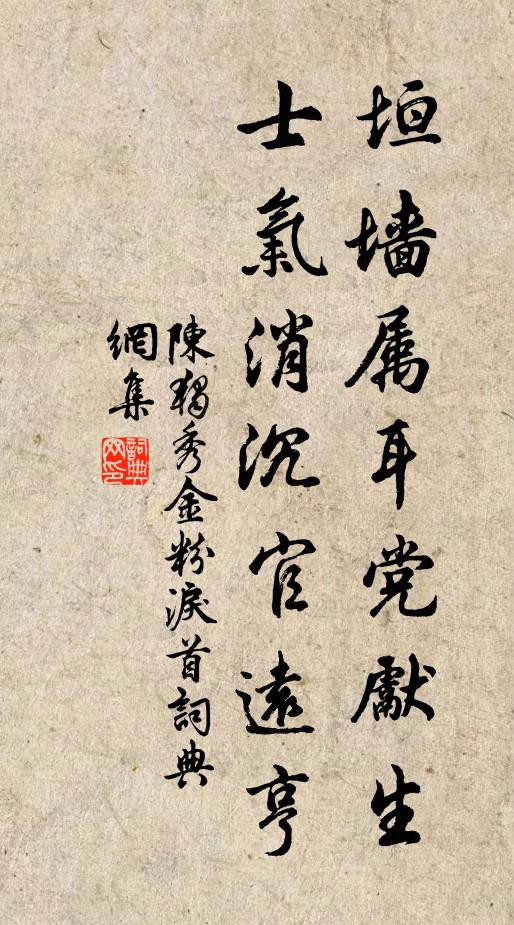 垣墙属耳党獻生
士氣消沉官遠亨
陳獨秀金粉淚首詞典
網集
詞典
网印